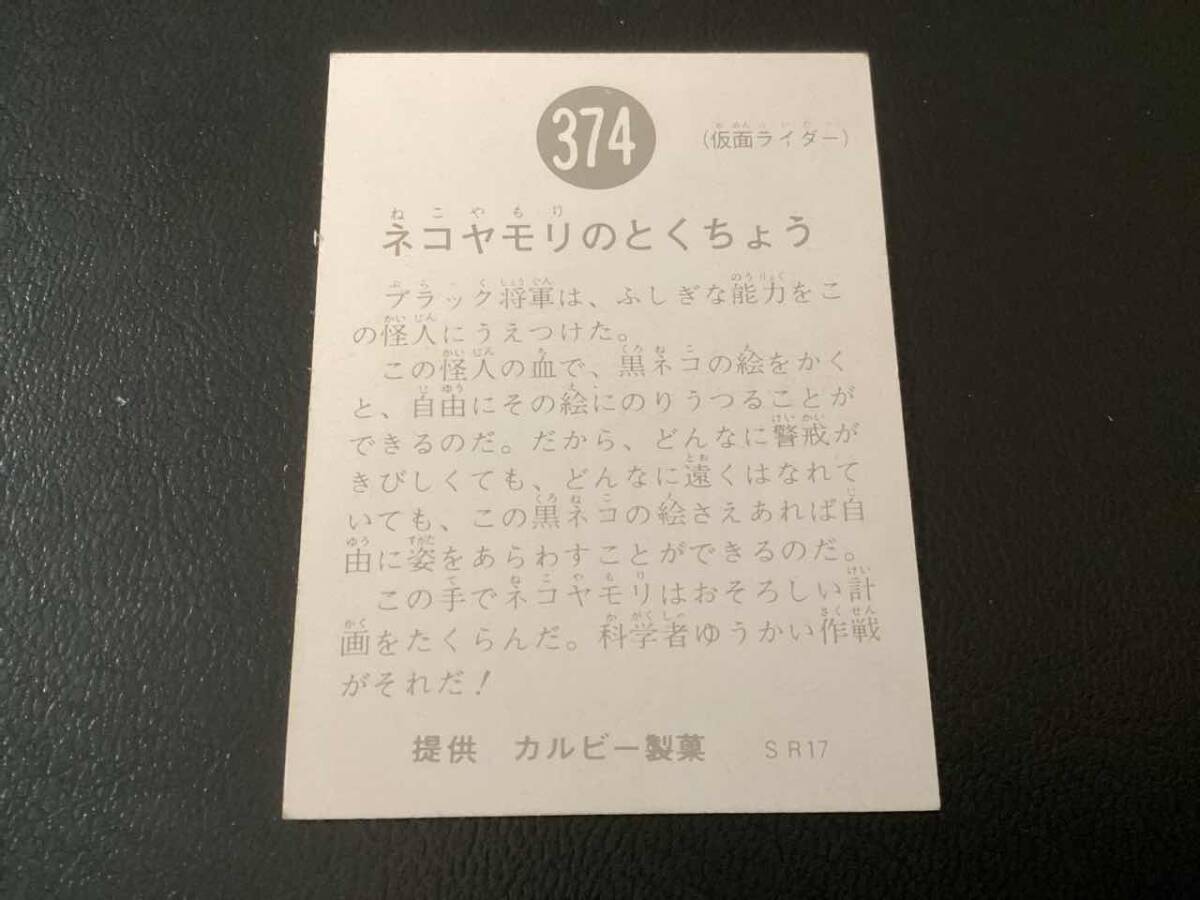 374
(仮面ライダー)
ネコヤモリのとくちょう
ブラック将軍は、ふしぎな能力をこ
の怪人にうえつけた。
この怪人の血で、黒ネコの絵をかく
と、自由にその絵にのりうつることが
できるのだ。だから、どんなに警戒が
きびしくても、どんなに遠くはなれて
いても、この黒ネコの絵さえあれば自
由に姿をあらわすことができるのだ。
この手でネコヤモリはおそろしい計
画をたくらんだ。科学者ゆうかい作戦
がそれだ!
提供 カルビー製菓 SR17